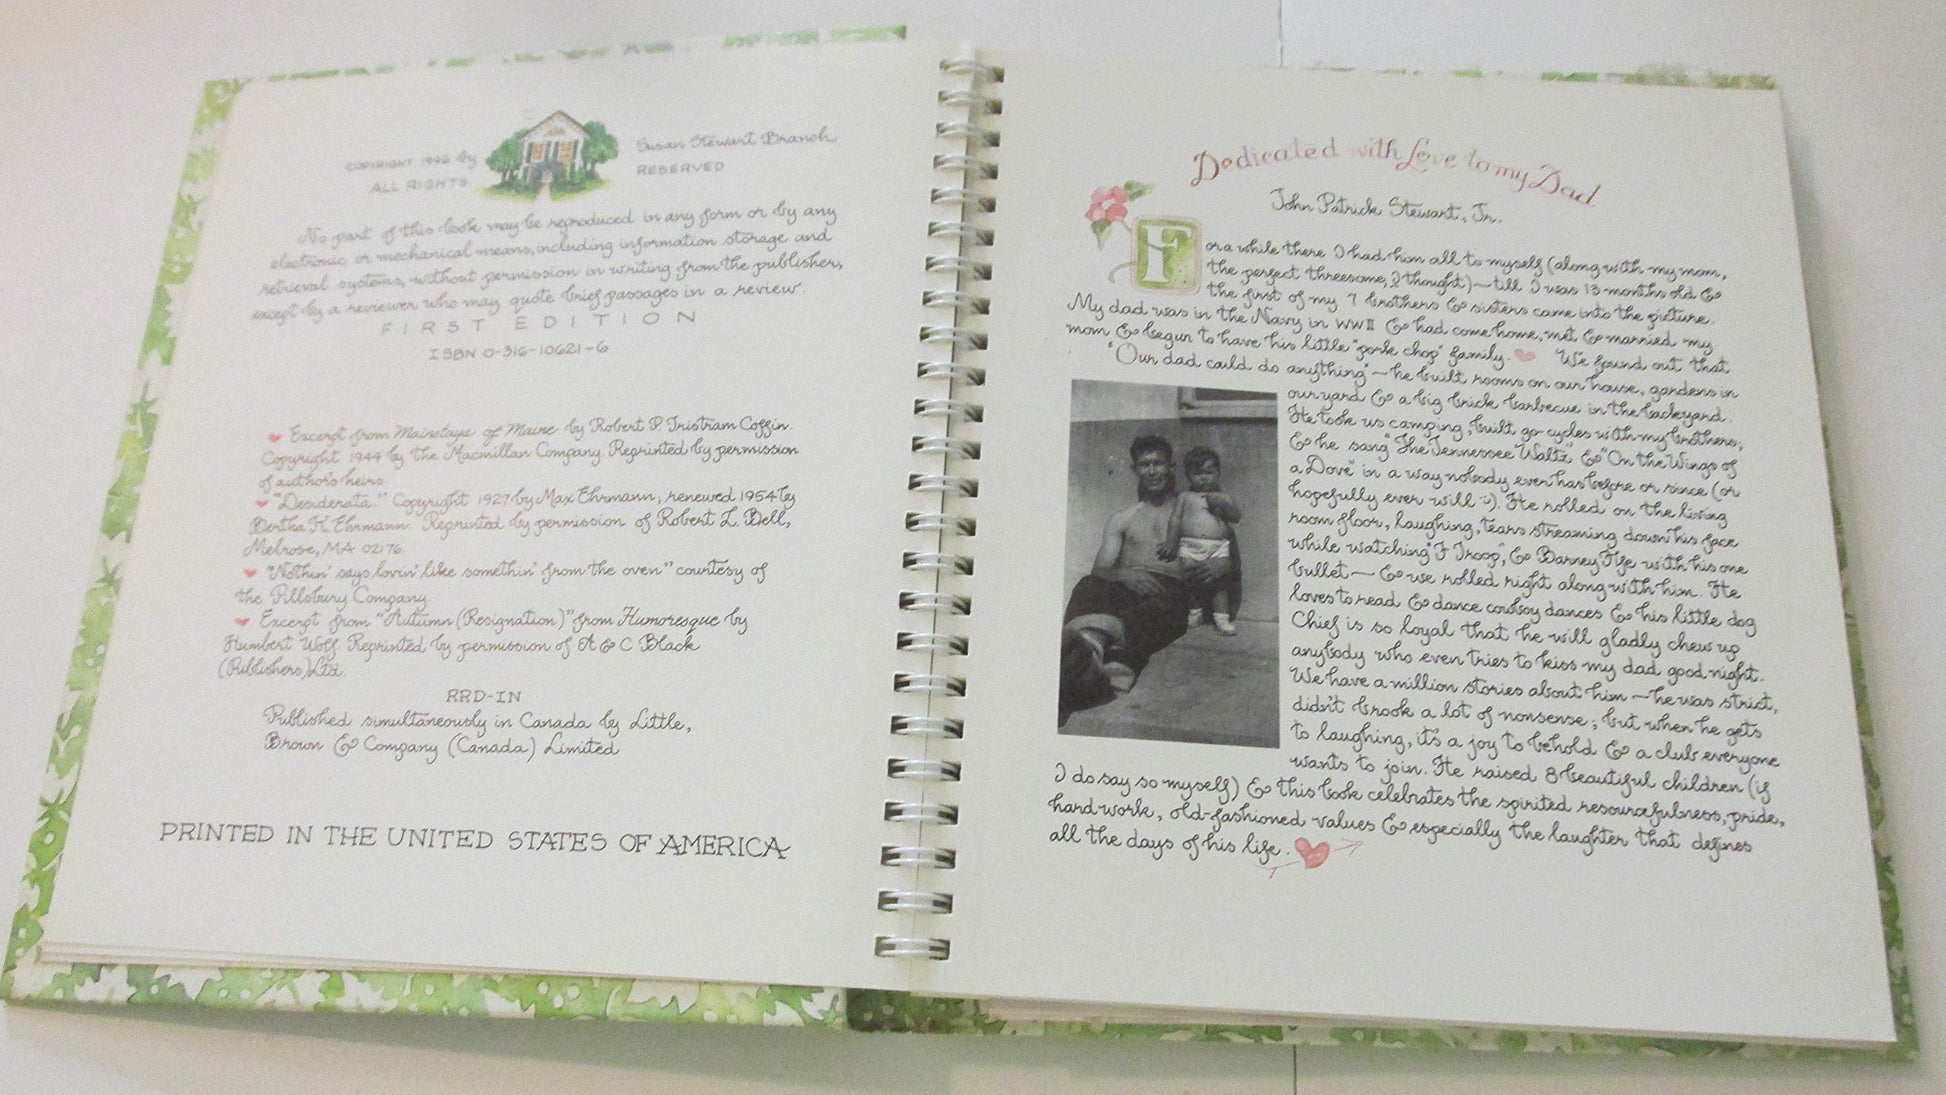 COPYRIGHT 1996 by Susan Stewart Branch
ALL RIGHTS RESERVED
No part of this book may be reproduced in any form or by any
electronic or mechanical means, including information storage and
retrieval systems, without permission in writing from the publisher,
except by a reviewer who may quote brief passages in a review.
FIRST EDITION
ISBN 0-316-10621-6
♥ Excerpt from Mainstays of Maine by Robert P. Tristram Coffin.
Copyright 1944 by the Macmillan Company. Reprinted by permission
of author's heirs.
♥ "Desiderata." Copyright 1927 by Max Ehrmann, renewed 1954 by
Bertha K. Ehrmann. Reprinted by permission of Robert L. Bell,
Melrose, MA 02176.
♥ "Nothin' says lovin' like somethin' from the oven" courtesy of
the Pillsbury Company.
♥ Excerpt from "Autumn (Resignation)" from Humoresque by
Humbert Wolf. Reprinted by permission of A & C Black
(Publishers) Ltd.
RRD-IN
Published simultaneously in Canada by Little,
Brown & Company (Canada) Limited
PRINTED IN THE UNITED STATES OF AMERICA
Dedicated with Love to my Dad.
John Patrick Stewart, Jr.
For a while there I had him all to myself (along with my mom,
the perfect threesome, I thought) — till I was 13 months old &
the first of my 7 brothers & sisters came into the picture.
My dad was in the Navy in WWII & had come home, met & married my
mom & begun to have his little "pork chop" family. ♥ We found out that
"Our dad could do anything" — he built rooms on our house, gardens in
our yard & a big brick barbecue in the backyard.
He took us camping, built go-cycles with my brothers,
& he sang "The Tennessee Waltz" & "On the Wings of
a Dove" in a way nobody ever has before or since (or
hopefully ever will :). He rolled on the living
room floor, laughing, tears streaming down his face
while watching "F Troop," & Barney Fife with his one
bullet — & we rolled right along with him. He
loves to read & dance cowboy dances & his little dog
Chief is so loyal that he will gladly chew up
anybody who even tries to kiss my dad good night.
We have a million stories about him — he was strict,
didn't brook a lot of nonsense; but when he gets
to laughing, it's a joy to behold & a club everyone
wants to join. He raised 8 beautiful children (if
I do say so myself) & this book celebrates the spirited resourcefulness, pride,
hard work, old-fashioned values & especially the laughter that defines
all the days of his life.